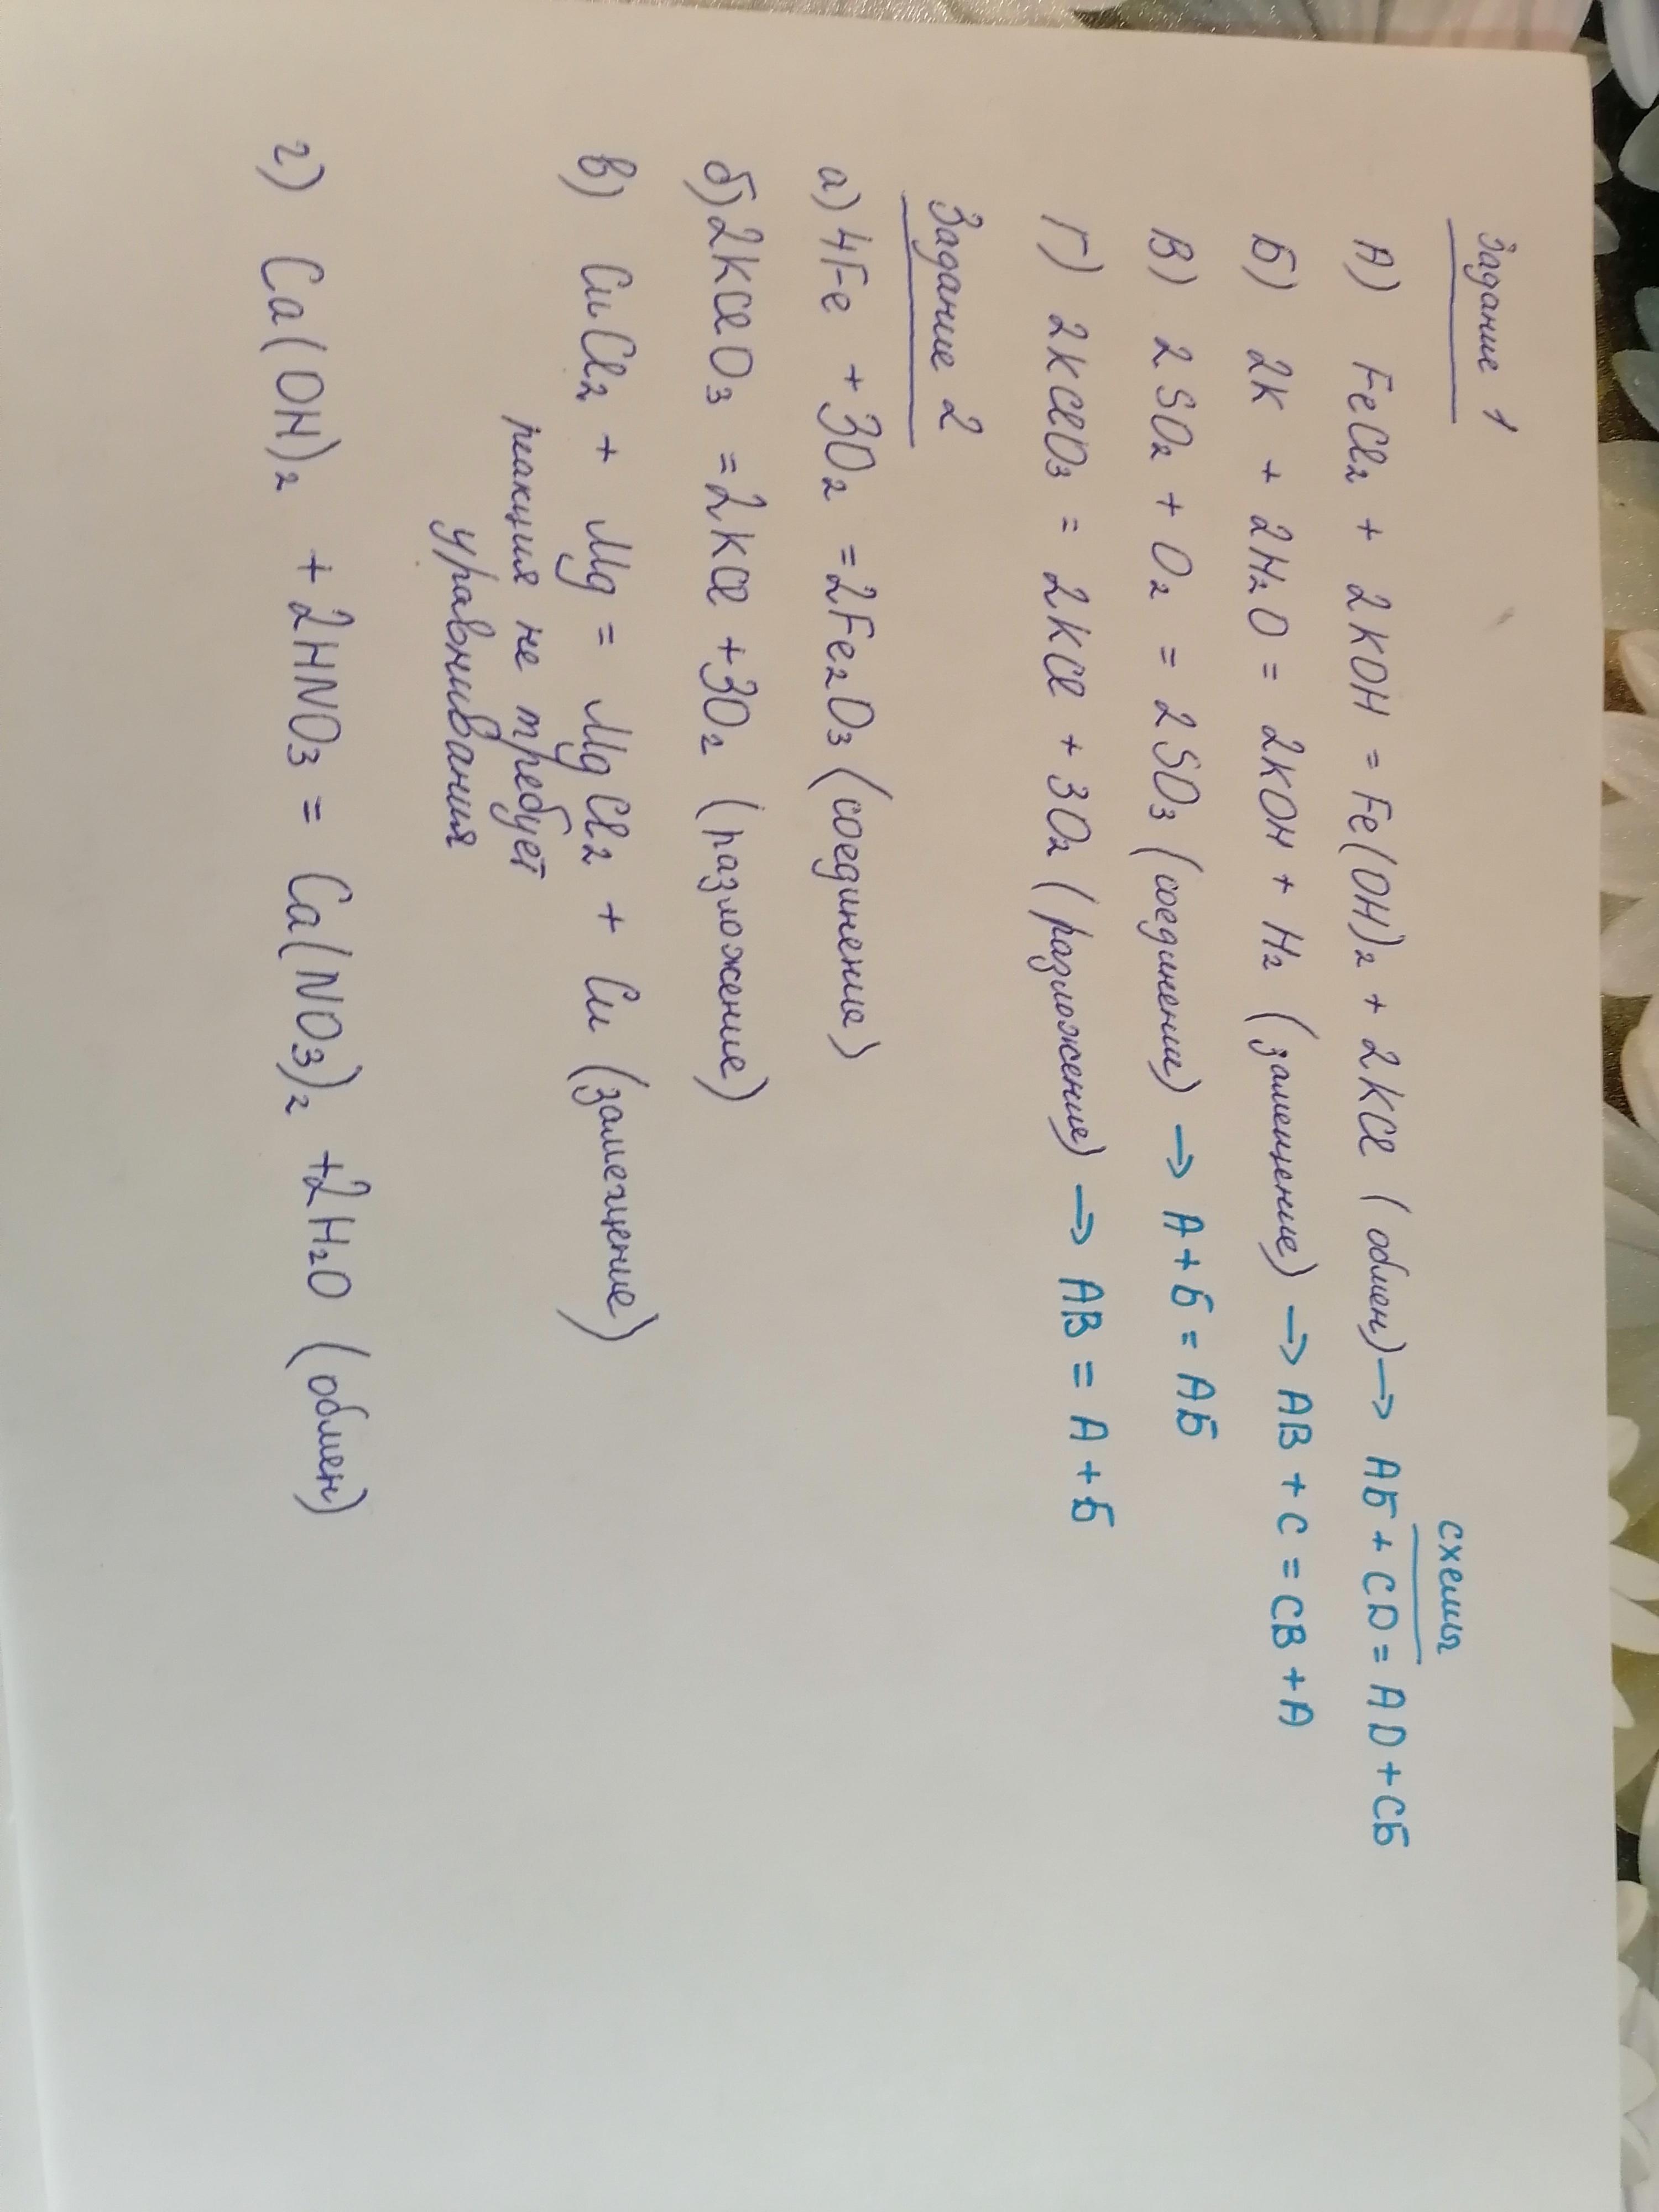 Задание 1
схемы
А) FeCl₂ + 2KOH = Fe(OH)₂ + 2KCl (обмен) → АБ + СD = АD + СБ
Б) 2K + 2H₂O = 2KOH + H₂ (замещение) → АВ + С = СВ + А
В) 2SO₂ + O₂ = 2SO₃ (соединение) → А + Б = АБ
Г) 2KClO₃ = 2KCl + 3O₂ (разложение) → АВ = А + Б
Задание 2
а) 4Fe + 3O₂ = 2Fe₂O₃ (соединение)
б) 2KClO₃ = 2KCl + 3O₂ (разложение)
в) CuCl₂ + Mg = MgCl₂ + Cu (замещение)
реакция не требует
уравнивания
г) Ca(OH)₂ + 2HNO₃ = Ca(NO₃)₂ + 2H₂O (обмен)